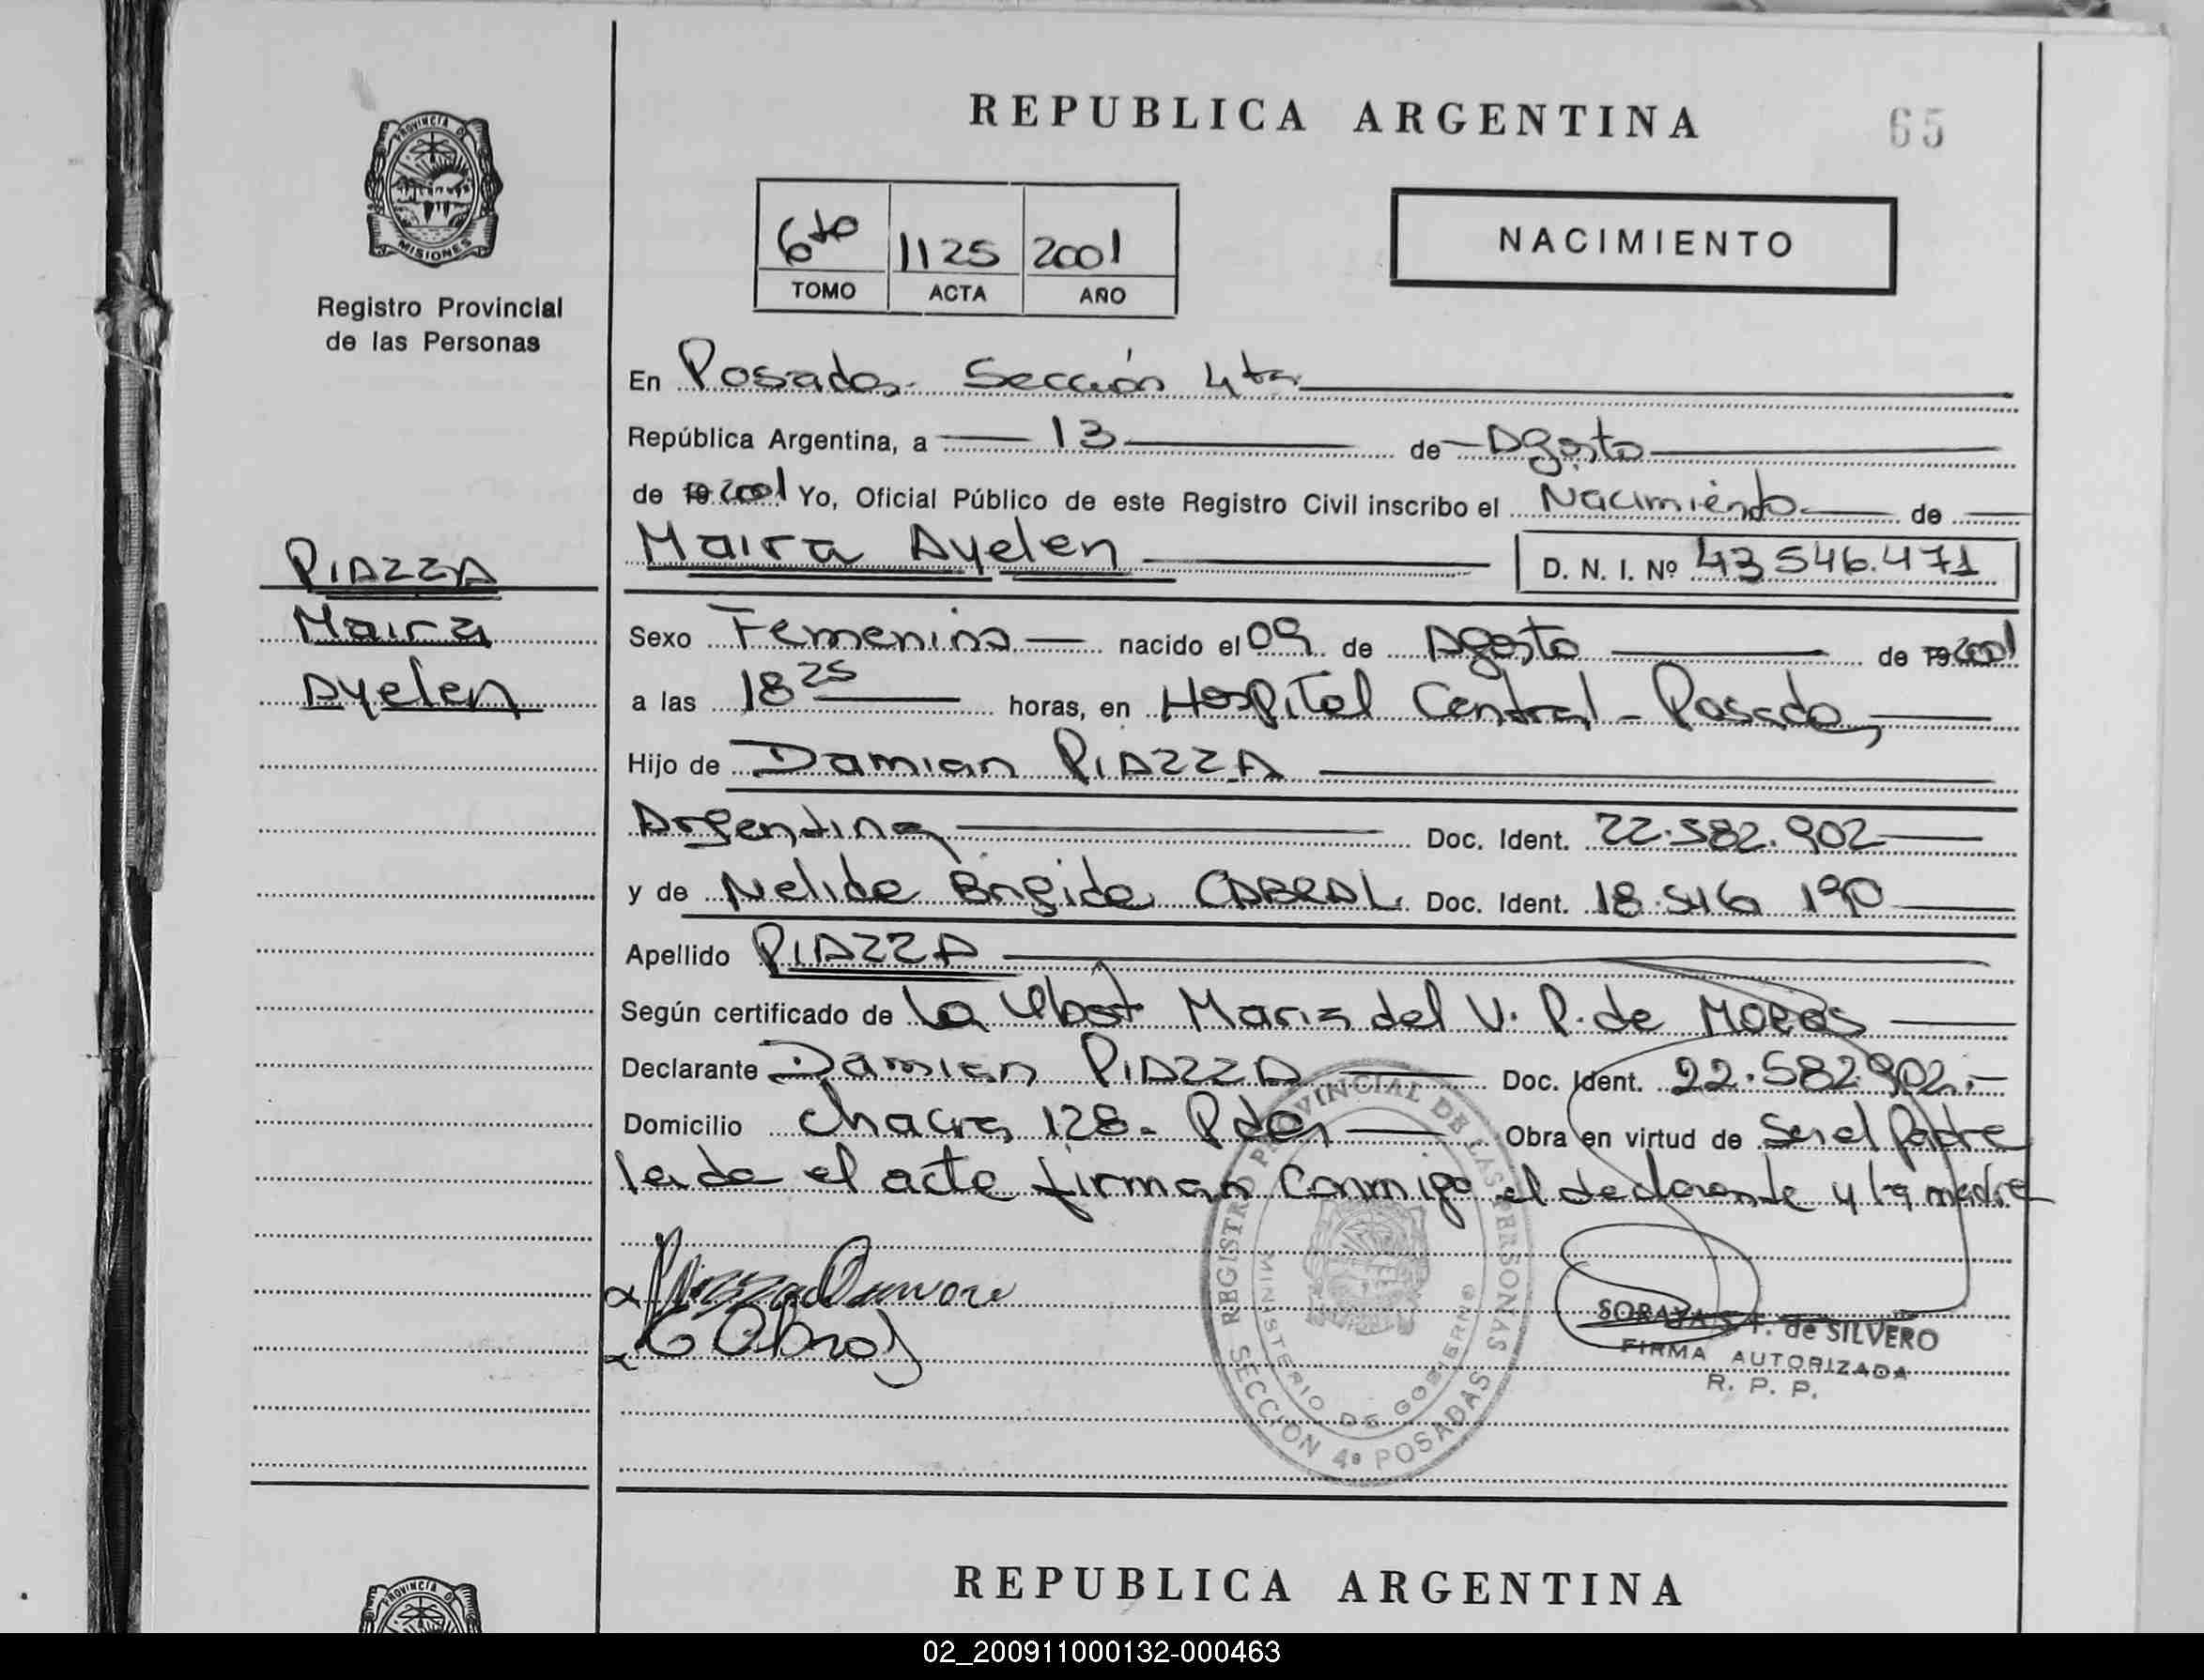 REPUBLICA ARGENTINA
65
PROVINCIA DE
MISIONES
Registro Provincial
de las Personas
6to 1125 2001
TOMO ACTA AÑO
NACIMIENTO
En Posadas. Sección 4ta
República Argentina, a 13 de Agosto
de 19 2001 Yo, Oficial Público de este Registro Civil inscribo el Nacimiento de
Maira Ayelen D. N. I. Nº 43.546.471
PIAZZA
Maira
Ayelen
Sexo Femenino nacido el 09 de Agosto de 19 2001
a las 18 25 horas, en Hospital Central - Posadas
Hijo de Damian PIAZZA
Argentina Doc. Ident. 22.582.902
y de Nelida Brigida CABRAL Doc. Ident. 18.546 190
Apellido PIAZZA
Según certificado de La Obst Maria del V. P. de MORAS
Declarante Damian PIAZZA Doc. Ident. 22.582.902.-
Domicilio Chacra 128. Pdas Obra en virtud de Ser el Padre
leida el acta firman conmigo el declarante y la madre
REGISTRO PROVINCIAL DE LAS PERSONAS
MINISTERIO DE GOBIERNO
SECCION 4ª POSADAS
SORAYA S. F. de SILVERO
FIRMA AUTORIZADA
R. P. P.
REPUBLICA ARGENTINA
PROVINCIA
02_200911000132-000463